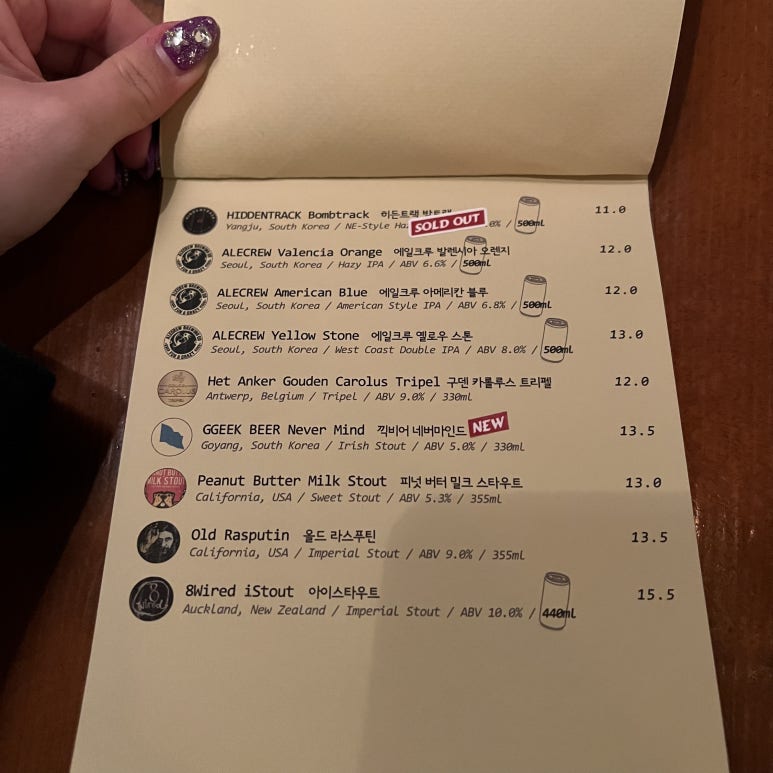 HIDDENTRACK Bombtrack 히든트랙 밤트랙
SOLD OUT
Yangju, South Korea / NE-Style / 500mL
11.0
ALECREW Valencia Orange 에일크루 발렌시아 오렌지
Seoul, South Korea / Hazy IPA / ABV 6.6% / 500mL
12.0
ALECREW American Blue 에일크루 아메리칸 블루
Seoul, South Korea / American Style IPA / ABV 6.8% / 500mL
12.0
ALECREW Yellow Stone 에일크루 옐로우 스톤
Seoul, South Korea / West Coast Double IPA / ABV 8.0% / 500mL
13.0
Het Anker Gouden Carolus Tripel 구덴 카롤루스 트리펠
Antwerp, Belgium / Tripel / ABV 9.0% / 330ml
12.0
GGEEK BEER Never Mind 끽비어 네버마인드 NEW
Goyang, South Korea / Irish Stout / ABV 5.0% / 330ml
13.5
Peanut Butter Milk Stout 피넛 버터 밀크 스타우트
California, USA / Sweet Stout / ABV 5.3% / 355ml
13.0
Old Rasputin 올드 라스푸틴
California, USA / Imperial Stout / ABV 9.0% / 355ml
13.5
8Wired iStout 아이스타우트
Auckland, New Zealand / Imperial Stout / ABV 10.0% / 440mL
15.5